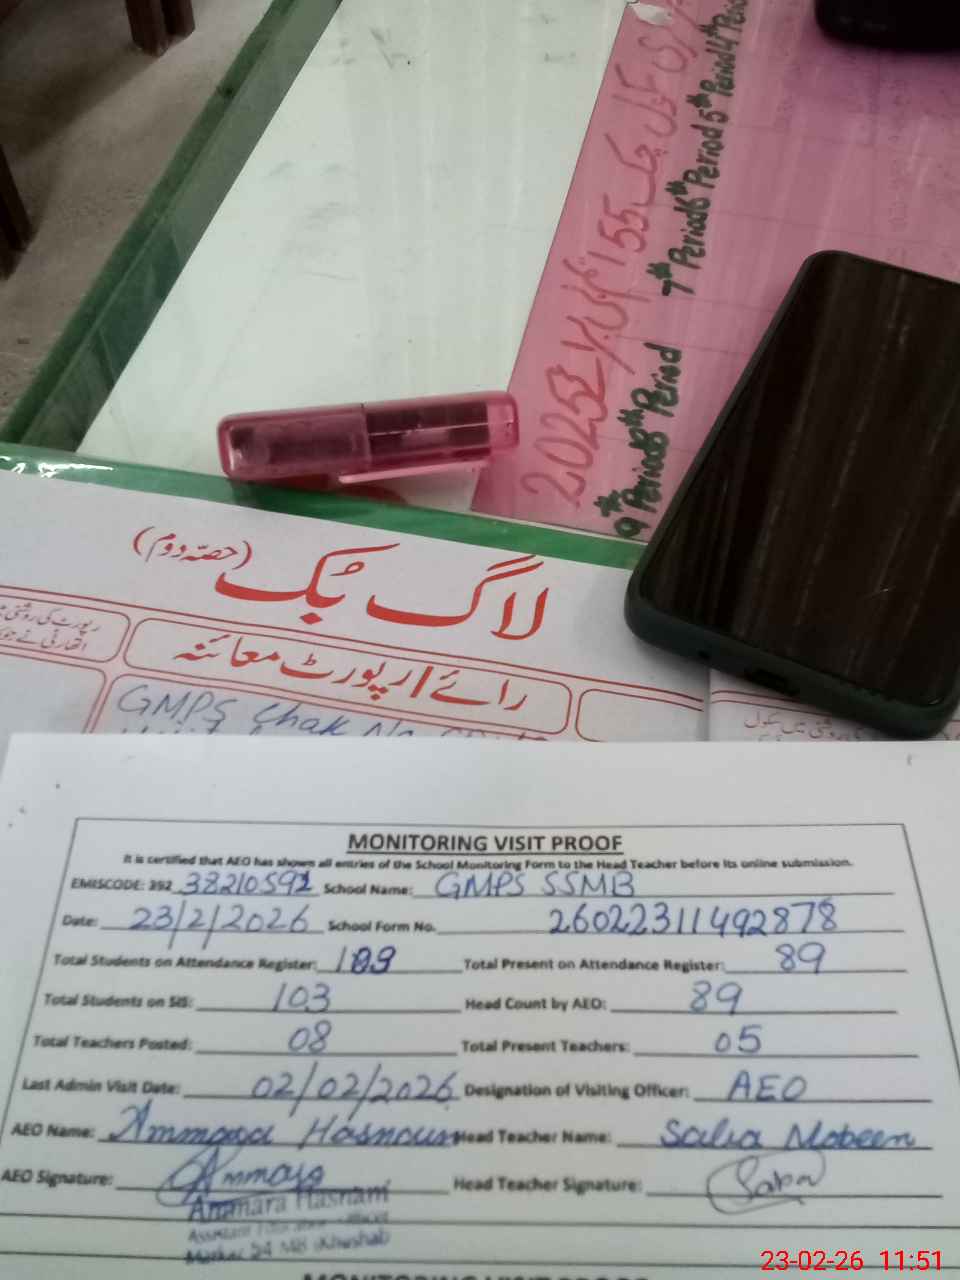 4th Period
5th Period
6th Period
7th Period
8th Period
9th Period
2025 155
لاگ بُک (حصّہ دوم)
رائے/رپورٹ معائنہ
رپورٹ کی روشنی
GMPS Chak No
روشنی میں سکول
MONITORING VISIT PROOF
It is certified that AEO has shown all entries of the School Monitoring Form to the Head Teacher before its online submission.
EMISCODE: 392 38210592 School Name: GMPS 55MB
Date: 23/2/2026 School Form No. 26022311492878
Total Students on Attendance Register: 103 Total Present on Attendance Register: 89
Total Students on SIS: 103 Head Count by AEO: 89
Total Teachers Posted: 08 Total Present Teachers: 05
Last Admin Visit Date: 02/02/2026 Designation of Visiting Officer: AEO
AEO Name: Ammara Hasnain Head Teacher Name: Salia Mobeen
AEO Signature: Ammara Head Teacher Signature:
Ammara Hasnain
Markaz 54 MB (Khushab)
MONITORING VISIT PROOF
23-02-26 11:51